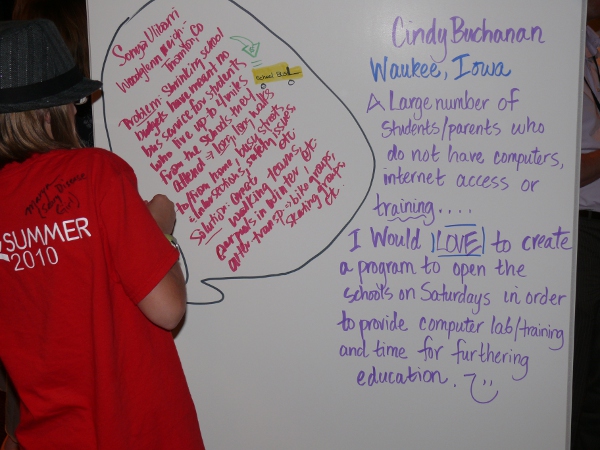 Sonya Ulibarri
Woodglenn Neigh.-
Thornton, Co
Problem: Shrinking school
budgets have meant no
bus service for students
who live up to 4 miles
from the schools they
attend => long, long walks
to/from home, busy streets
intersections, safety issues
etc
Solution: Create
walking teams,
carpools in winter, etc
alt. transp => bike groups,
skating groups,
etc.
School Bus
Cindy Buchanan
Waukee, Iowa
A Large number of
students/parents who
do not have computers,
internet access or
training....
I Would LOVE to create
a program to open the
schools on Saturdays in order
to provide computer lab/training
and time for furthering
education.
SUMMER
2010